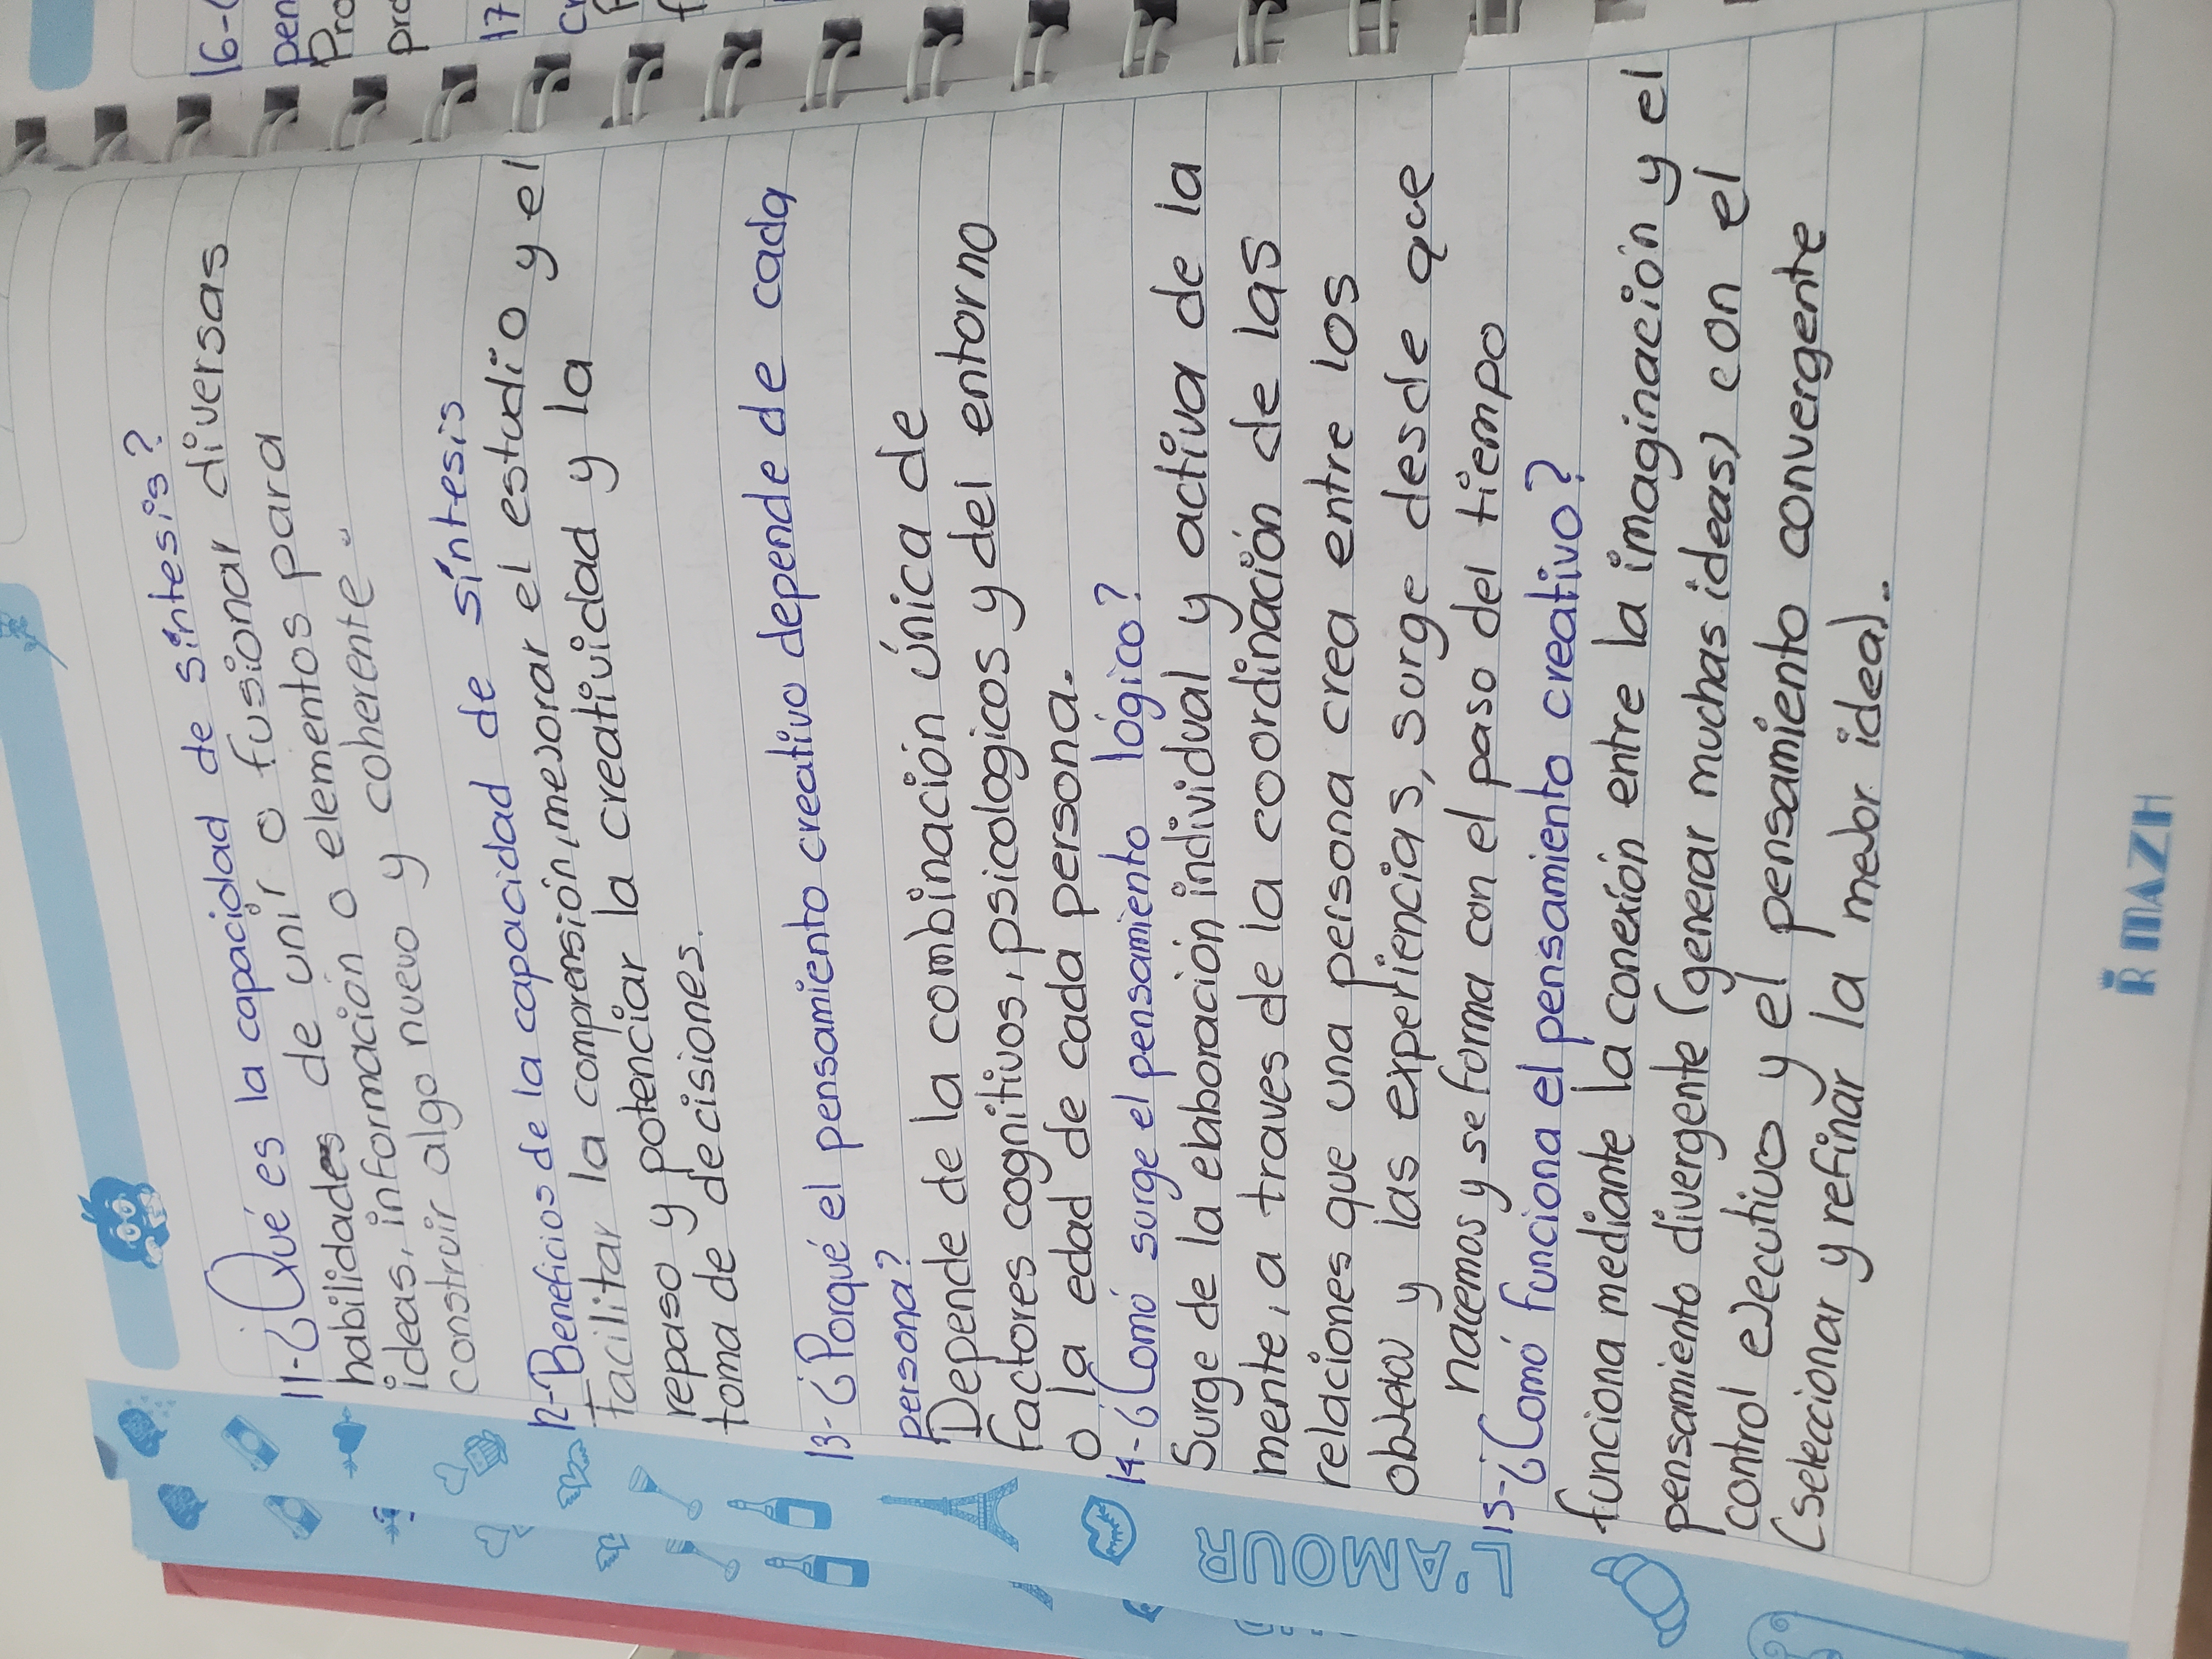 11-¿Qué es la capacidad de síntesis?
habilidades de unir o fusionar diversas
ideas, información o elementos para
construir algo nuevo y coherente.
12-Beneficios de la capacidad de síntesis
Facilitar la comprensión, mejorar el estudio y el
repaso y potenciar la creatividad y la
toma de decisiones.
13-¿Porqué el pensamiento creativo depende de cada
persona?
Depende de la combinación única de
factores cognitivos, psicologicos y del entorno
o la edad de cada persona.
14-¿Comó surge el pensamiento lógico?
Surge de la elaboración individual y activa de la
mente, a traves de la coordinación de las
relaciones que una persona crea entre los
y las experiencias, surge desde que
nacemos y se forma con el paso del tiempo
15-¿Comó funciona el pensamiento creativo?
funciona mediante la conexión entre la imaginación y el
pensamiento divergente (generar muchas ideas) con el
control ejecutivo y el pensamiento convergente
(seleccionar y refinar la mejor idea).
L'AMOUR
RIMAZH
16-
pen
Pro
pro
17